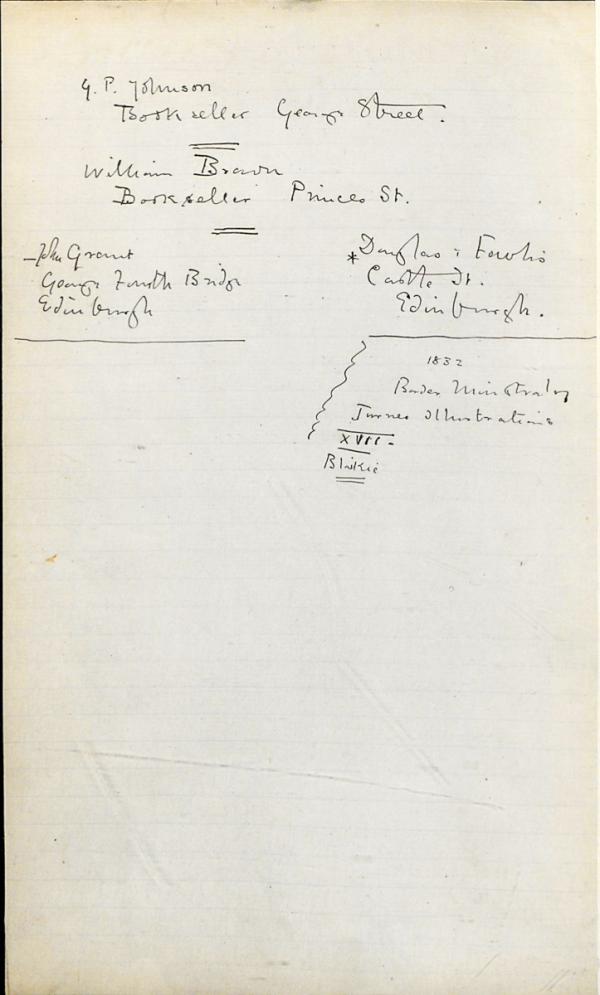 G. P. Johnson
Bookseller George Street.
William Brown
Bookseller Princes St.
John Grant
George Fourth Bridge
Edinburgh
*Douglas & Foulis
Castle St.
Edinburgh.
1832
Border Minstrelsy
Turner Illustrations
XVII.
Blaikie